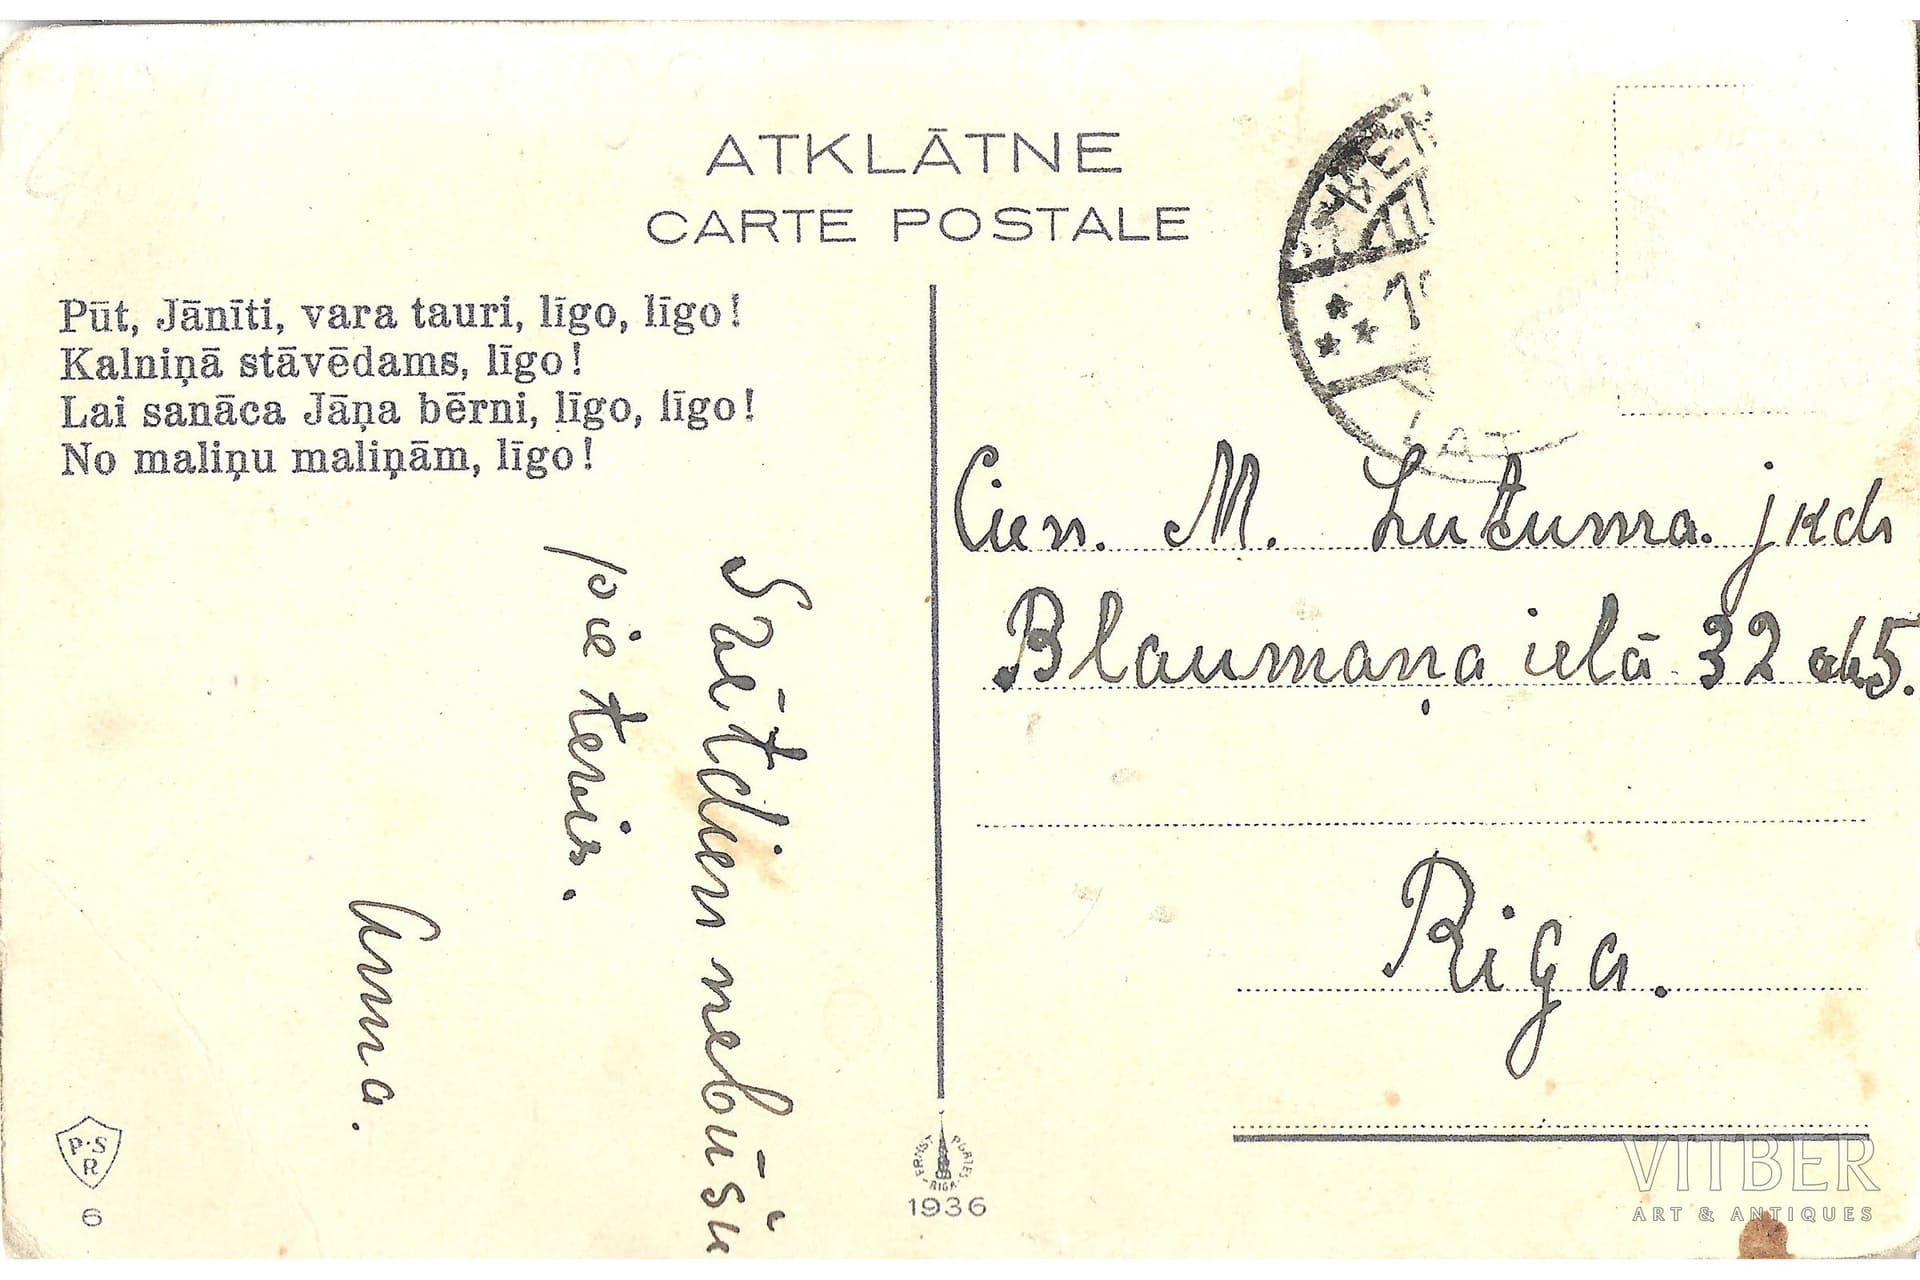 ATKLĀTNE
CARTE POSTALE
Pūt, Jānīti, vara tauri, līgo, līgo!
Kalniņā stāvēdams, līgo!
Lai sanāca Jāņa bērni, līgo, līgo!
No maliņu maliņām, līgo!
Svētdien nebūšu
pie tevis.
Anna.
Cien. M. Lutuma. jkdz
Blaumaņa ielā 32 dz 5.
Riga.
P.S
R
6
ERNST PLATES
RIGA
1936
LAT
VITBER
ART & ANTIQUES